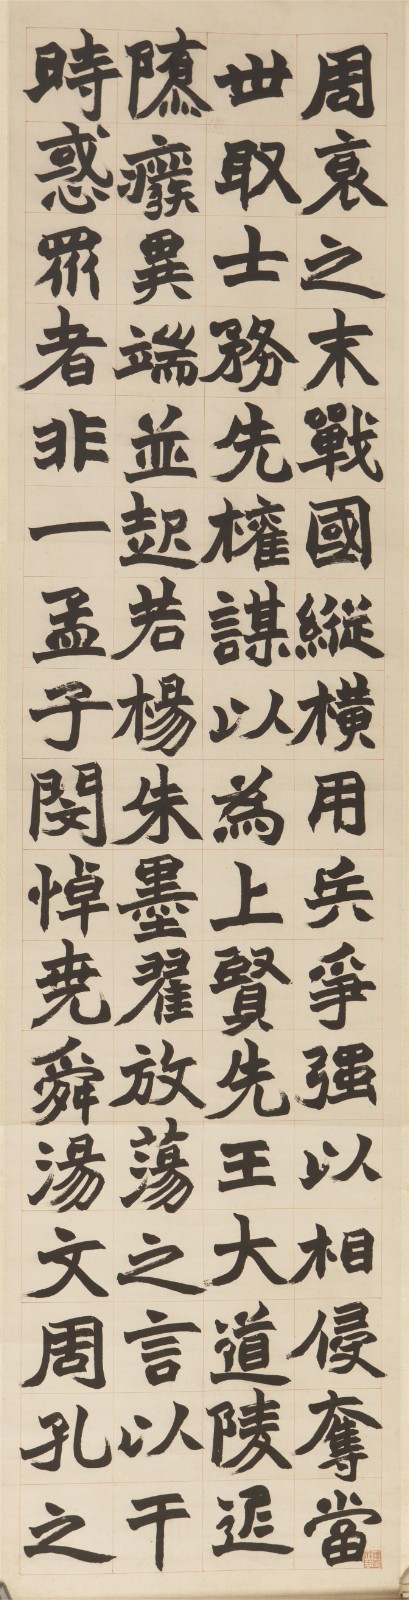 周衰之末戰國縱橫用兵爭强以相侵奪當
世取士務先權謀以為上賢先王大道陵遲
隳廢異端並起若楊朱墨翟放蕩之言以干
時惑眾者非一孟子閔悼堯舜湯文周孔之